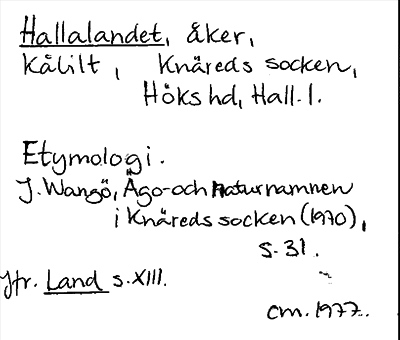 Hallalandet, åker,
Kålilt, Knäreds socken,
Höks hd, Hall. l.
Etymologi.
J. Wangö, Ägo- och naturnamnen
i Knäreds socken (1970),
s. 31.
Jfr. Land s. XIII.
cm. 1977.